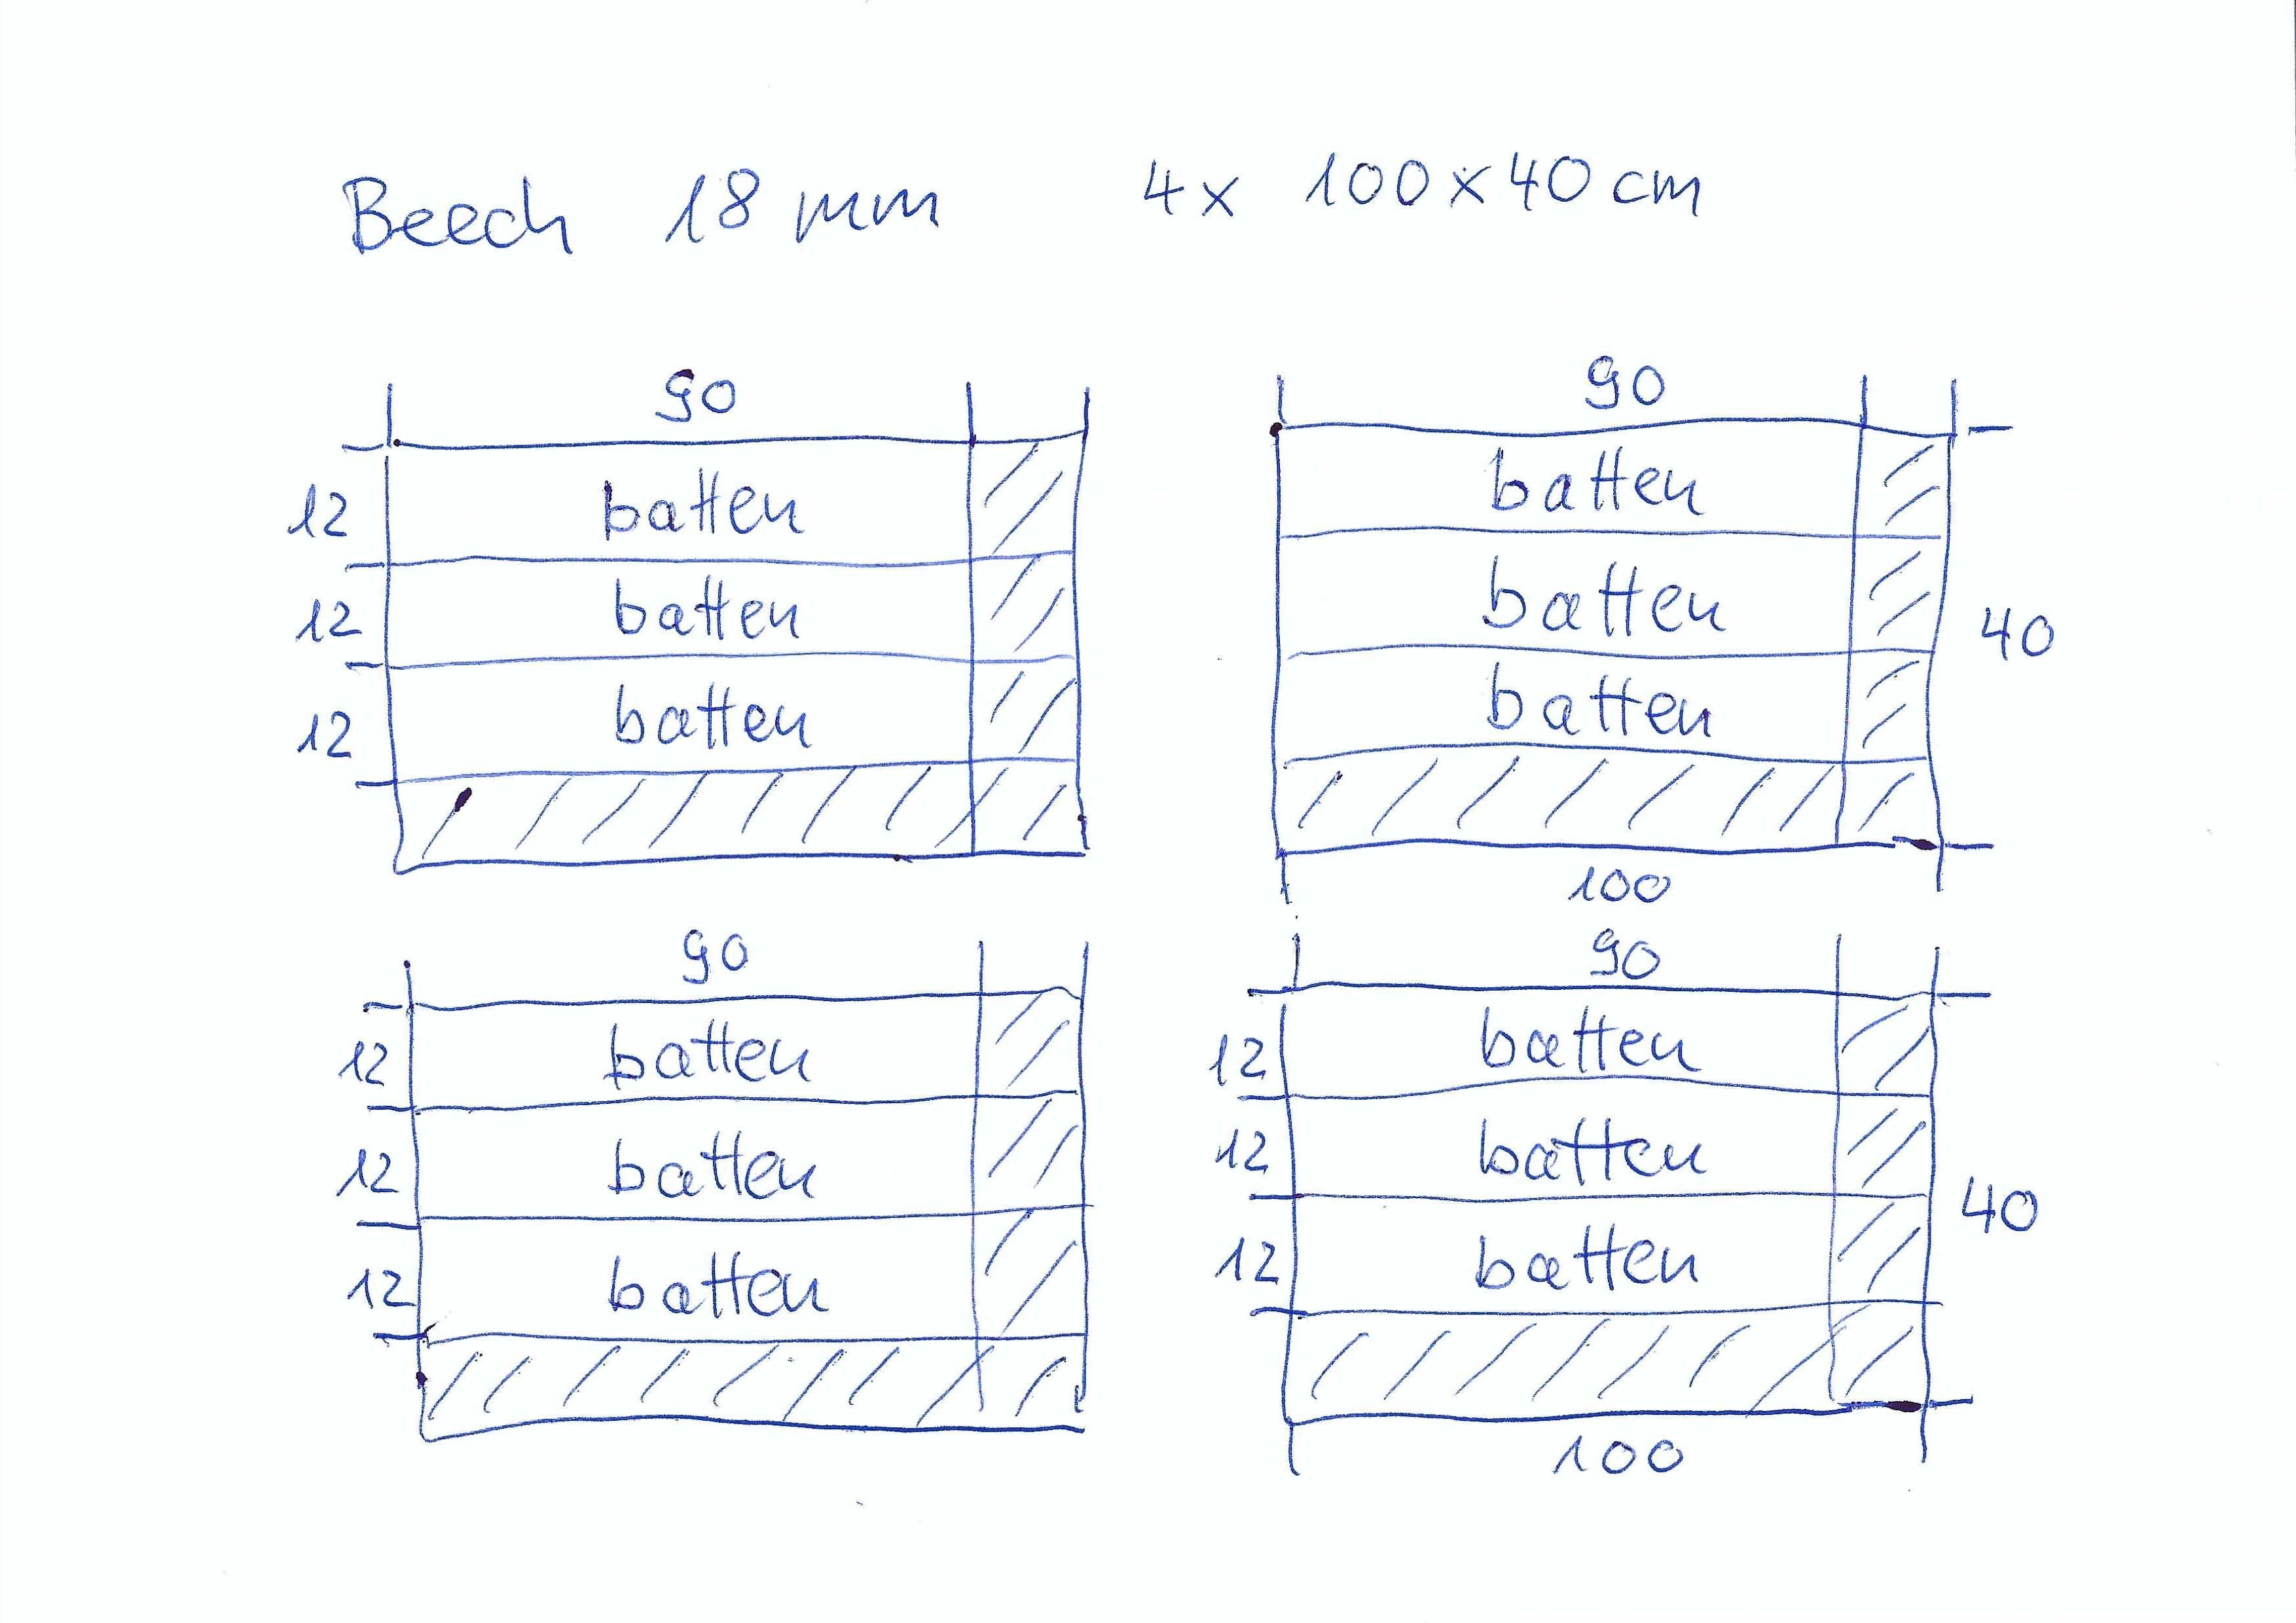 Beech 18 mm 4x 100x40 cm
90
12 batten
12 batten
12 batten
90
batten
batten
batten
40
100
90
12 batten
12 batten
12 batten
90
12 batten
12 batten
12 batten
40
100